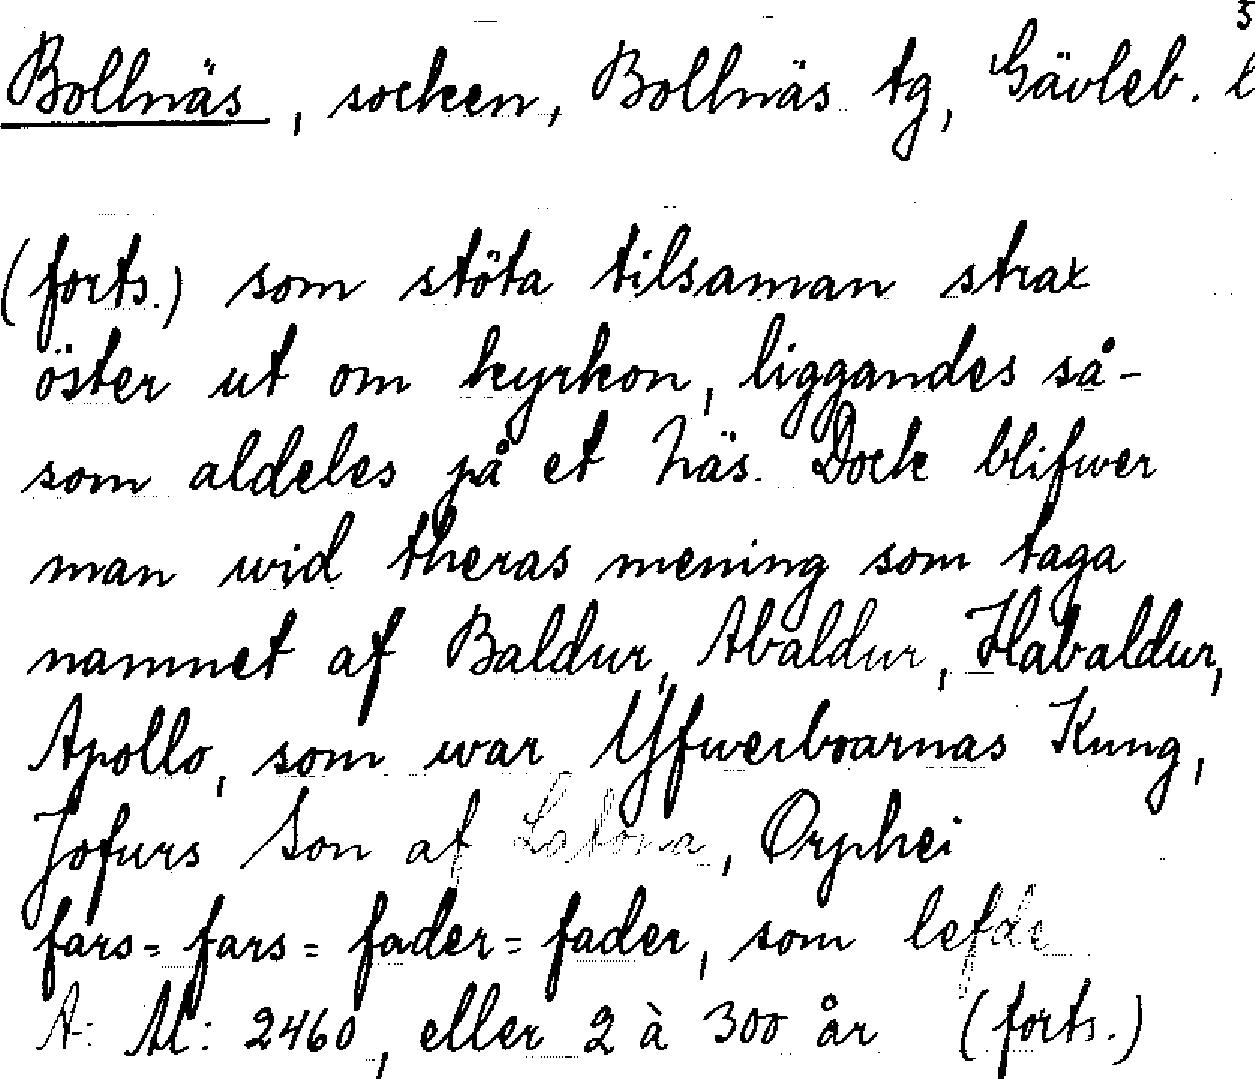 5
Bollnäs, socken, Bollnäs tg, Gävleb. l
(forts.) som stöta tilsaman strax
öster ut om kyrkon, liggandes så-
som aldeles på et Näs. Dock blifwer
man wid theras mening som taga
namnet af Baldur, Abaldur, Habaldur,
Apollo, som war Yfwerboarnas Kung,
Jofurs Son af Latona, Orphei
fars= fars= fader= fader, som lefde
A: M: 2460, eller 2 à 300 år (forts.)